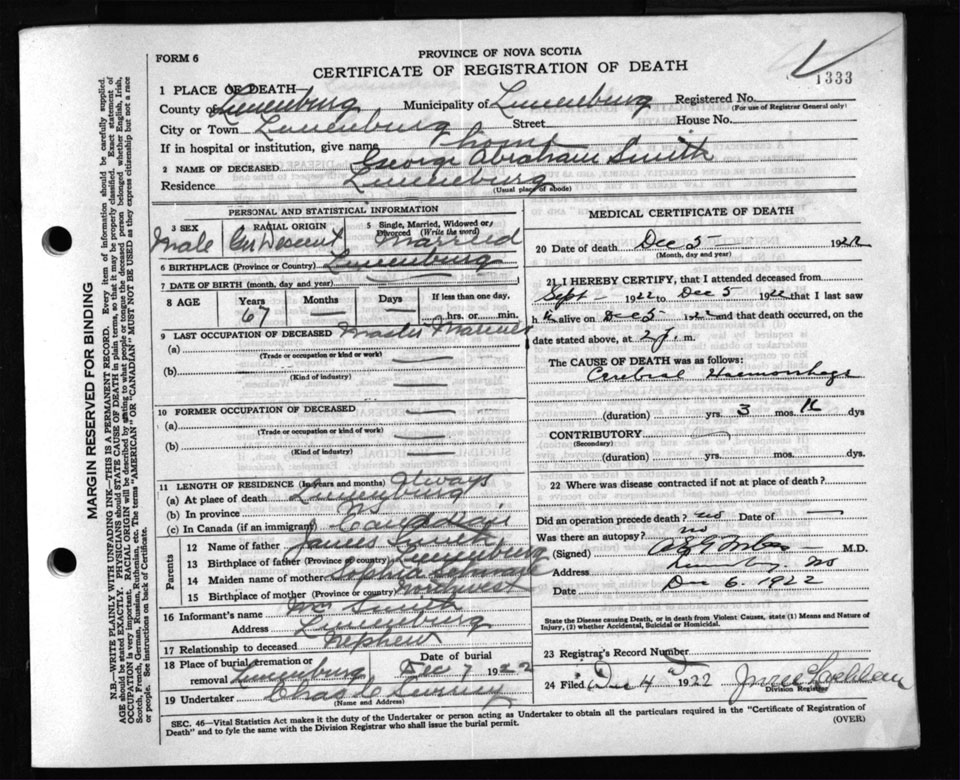 PROVINCE OF NOVA SCOTIA
FORM 6
CERTIFICATE OF REGISTRATION OF DEATH
1333
1 PLACE OF DEATH
County of Lunenburg Municipality of Lunenburg Registered No.
(For use of Registrar General only)
City or Town Lunenburg Street House No.
If in hospital or institution, give name
2 NAME OF DECEASED George Abraham Smith
Residence Lunenburg
(Usual place of abode)
PERSONAL AND STATISTICAL INFORMATION
3 SEX Male
RACIAL ORIGIN Descent
5 Single, Married, Widowed or Divorced (Write the word) Married
6 BIRTHPLACE (Province or Country) Lunenburg
7 DATE OF BIRTH (month, day and year)
8 AGE Years 67 Months — Days — If less than one day, hrs. or min.
9 LAST OCCUPATION OF DECEASED Master Mariner
(a)
(Trade or occupation or kind of work)
(b)
(Kind of industry)
10 FORMER OCCUPATION OF DECEASED
(a)
(Trade or occupation or kind of work)
(b)
(Kind of industry)
11 LENGTH OF RESIDENCE (in years and months) Always
(a) At place of death Lunenburg
(b) In province NS
(c) In Canada (if an immigrant)
Parents
12 Name of father James Smith
13 Birthplace of father (Province or country) Lunenburg
14 Maiden name of mother Sophia
15 Birthplace of mother (Province or country) Northwest
16 Informant's name Smith
Address Lunenburg
17 Relationship to deceased Nephew
18 Place of burial, cremation or removal Lunenburg Date of burial Dec 7 1922
19 Undertaker Chas
(Name and Address)
MEDICAL CERTIFICATE OF DEATH
20 Date of death Dec 5 — 1922
(Month, day and year)
21 I HEREBY CERTIFY, that I attended deceased from
Sept — 1922 to Dec 5 1922 that I last saw
h alive on Dec 5 1922 and that death occurred, on
date stated above, at m.
The CAUSE OF DEATH was as follows:
Cerebral Haemorrhage
(duration) yrs. 3 mos. dys
CONTRIBUTORY
(Secondary)
(duration) yrs. mos. dys.
22 Where was disease contracted if not at place of death?
Did an operation precede death? no Date of —
Was there an autopsy? no
(Signed) M.D.
Address
Date Dec 6. 1922
State the Disease causing Death, or in death from Violent Causes, state (1) Means and Nature of Injury, (2) whether Accidental, Suicidal or Homicidal.
23 Registrar's Record Number
24 Filed 1922
Division Registrar
SEC. 46—Vital Statistics Act makes it the duty of the Undertaker or person acting as Undertaker to obtain all the particulars required in the "Certificate of Registration of
Death" and to fyle the same with the Division Registrar who shall issue the burial permit.
(OVER)
MARGIN RESERVED FOR BINDING
N.B.—WRITE PLAINLY WITH UNFADING INK—THIS IS A PERMANENT RECORD. Every item of information should be carefully supplied.
AGE should be stated EXACTLY. PHYSICIANS should STATE CAUSE OF DEATH in plain terms, so that it may be properly classified. Exact statement of
OCCUPATION is very important. RACIAL ORIGIN will be described by stating to what people or tongue the deceased person belonged whether English, Irish,
Scotch, French, German, Russian, Ruthenian, etc. The terms "AMERICAN" OR "CANADIAN" MUST NOT BE USED as they express citizenship but not a race
or people. See instructions on back of Certificate.